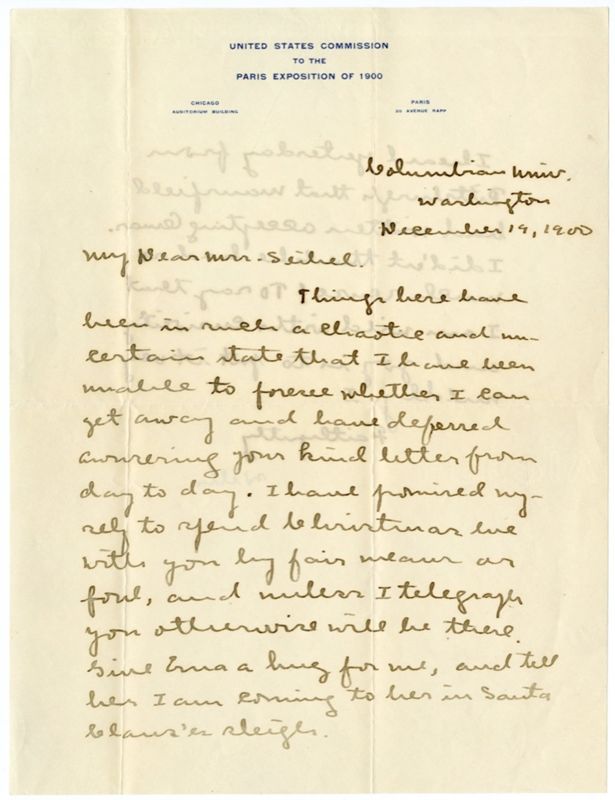 UNITED STATES COMMISSION
TO THE
PARIS EXPOSITION OF 1900
CHICAGO
AUDITORIUM BUILDING
PARIS
20 AVENUE RAPP
Columbian Univ.
Washington
December 19, 1900
My Dear Mrs. Seibel.
Things here have
been in such a chaotic and un-
certain state that I have been
unable to foresee whether I can
get away and have deferred
answering your kind letter from
day to day. I have promised my-
self to spend Christmas eve
with you by fair means or
foul, and unless I telegraph
you otherwise will be there.
Give Erna a hug for me, and tell
her I am coming to her in Santa
Claus'es sleigh.